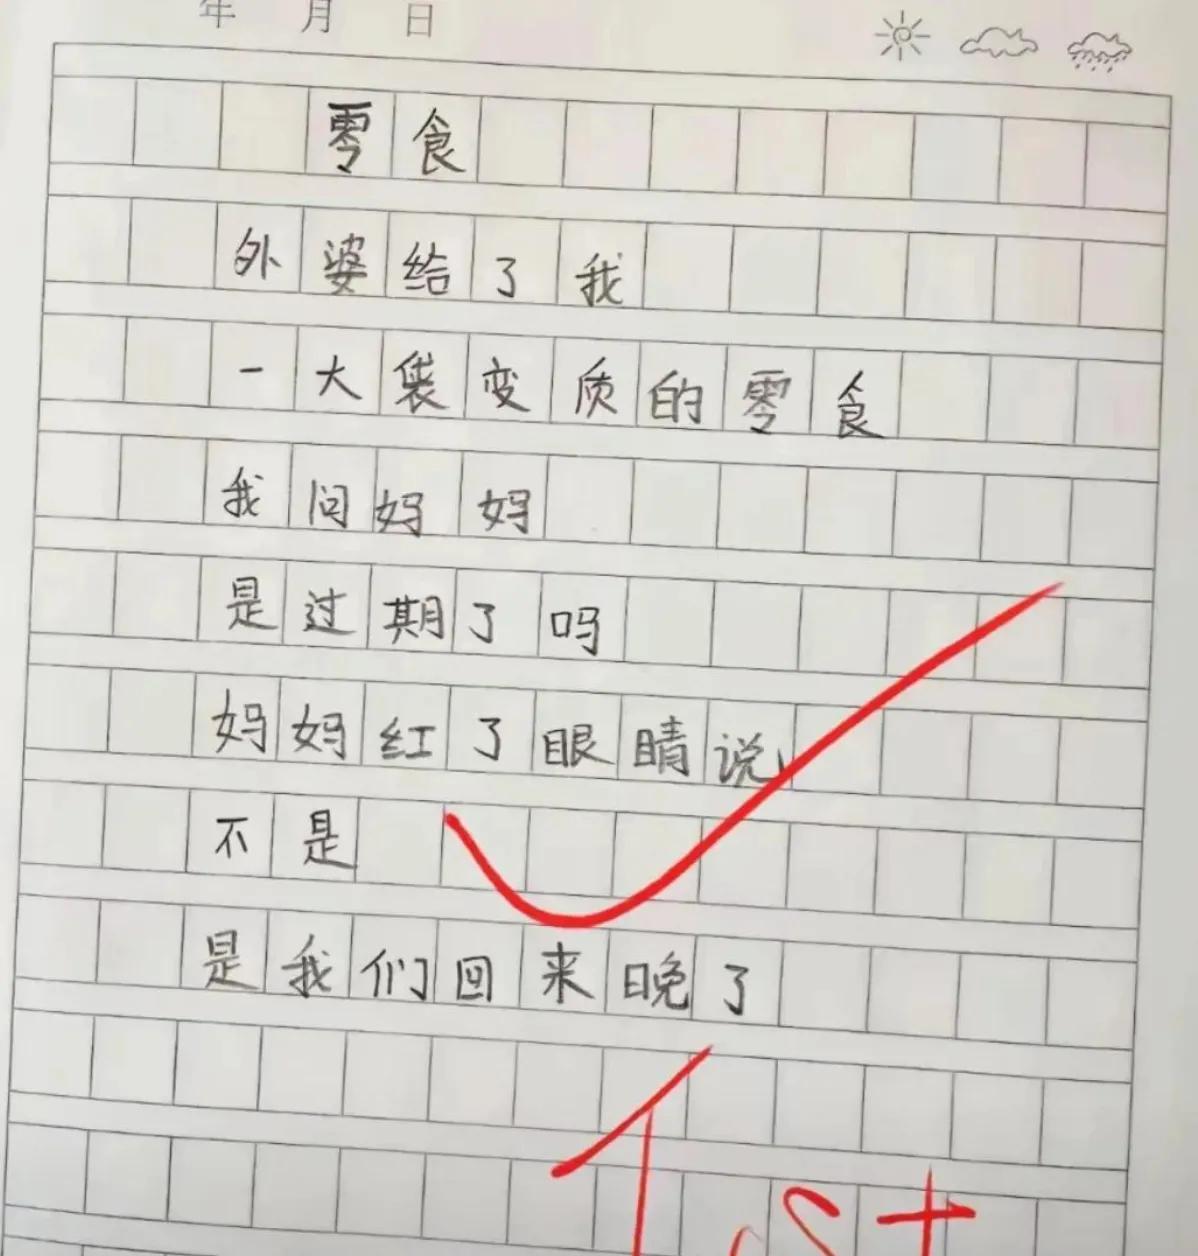 年 月 日
零食
外婆给了我
一大袋变质的零食
我问妈妈
是过期了吗
妈妈红了眼睛说
不是
是我们回来晚了